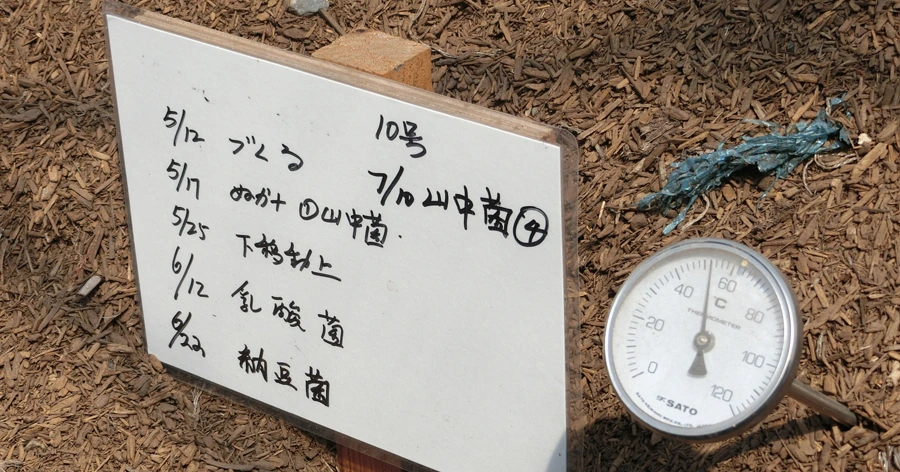 10号
5/12 づくる
5/17 ぬか+ ①山中菌
5/25 下移動上
6/12 乳酸菌
6/22 納豆菌
7/10 山中菌④
0
20
40
60
80
100
120
°C
THERMOMETER
SATO